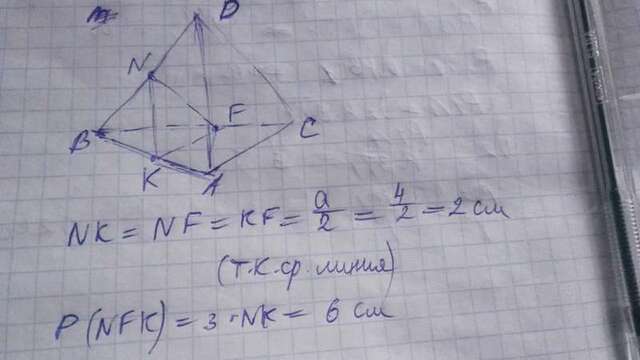 D
N
F
B
C
K
A
NK = NF = KF = a/2 = 4/2 = 2 см
(т.к. ср. линия)
P(NFK) = 3·NK = 6 см